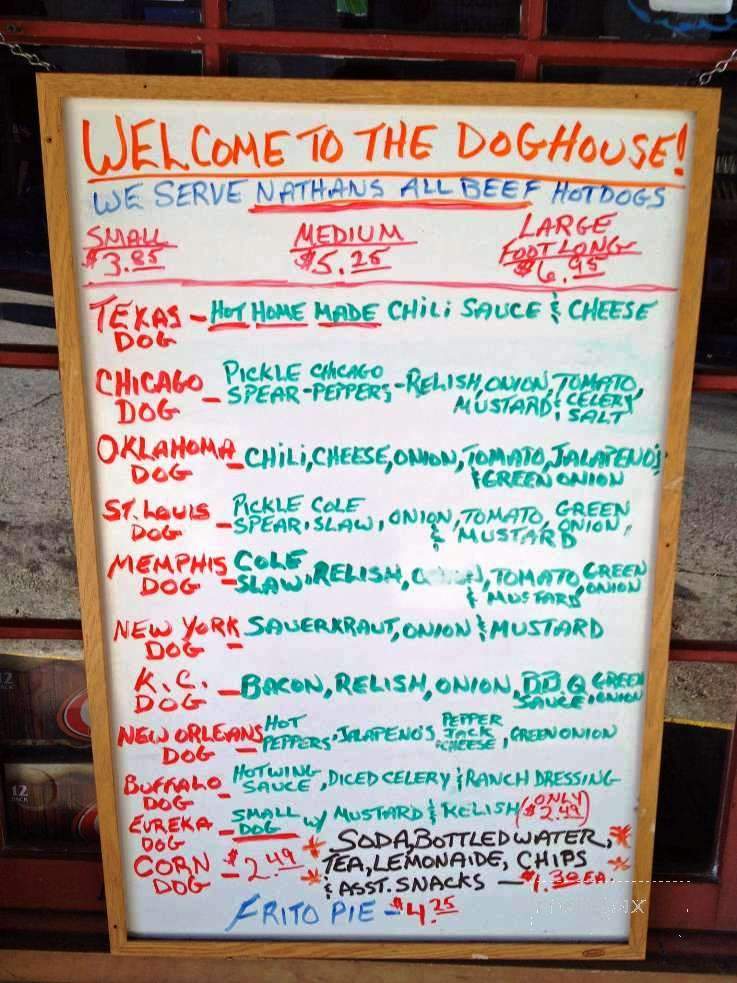 WELCOME TO THE DOGHOUSE!
WE SERVE NATHANS ALL BEEF HOTDOGS
SMALL MEDIUM LARGE FOOT LONG
$3.85 $5.25 $6.95
TEXAS DOG – HOT HOME MADE CHILI SAUCE & CHEESE
CHICAGO DOG – PICKLE SPEAR - CHICAGO PEPPERS, - RELISH, ONION, TOMATO, MUSTARD & CELERY SALT
OKLAHOMA DOG – CHILI, CHEESE, ONION, TOMATO, JALAPENO'S & GREEN ONION
ST. LOUIS DOG – PICKLE SPEAR, COLE SLAW, ONION, TOMATO, GREEN ONION, & MUSTARD
MEMPHIS DOG – COLE SLAW, RELISH, TOMATO, GREEN ONION & MUSTARD
NEW YORK DOG – SAUERKRAUT, ONION & MUSTARD
K.C. DOG – BACON, RELISH, ONION, BBQ SAUCE, GREEN ONION
NEW ORLEANS DOG – HOT PEPPERS, JALAPENO'S, PEPPER JACK CHEESE, GREEN ONION
BUFFALO DOG – HOTWING SAUCE, DICED CELERY & RANCH DRESSING
EUREKA DOG – SMALL DOG w/ MUSTARD & RELISH (ONLY $2.49)
CORN DOG – $2.49
* SODA, BOTTLED WATER, *
* TEA, LEMONAIDE, CHIPS *
& ASST. SNACKS — $1.30 EA.
FRITO PIE – $4.25
12 PACK
12 PACK